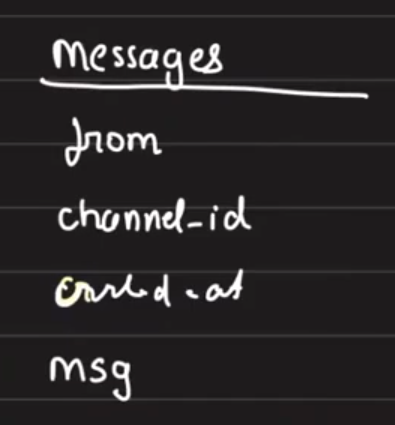 Messages
from
channel_id
created_at
msg